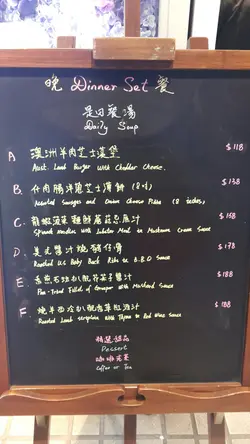 晚 Dinner Set 餐
是日餐湯
Daily Soup
A 澳洲羊肉芝士漢堡 $118
Aust. Lamb Burger With Cheddar Cheese.
B. 什肉腸洋葱芝士薄餅 (8吋) $138
Assorted Sausages and Onion Cheese Pizza (8 inches)
C. $158
Spinach Noodles with Lobster Meat in Mushroom Cream Sauce
D. 美式醬汁燒豬仔骨 $178
Roasted U.S Baby Back Ribs w B.B.Q Sauce
E. $188
Pan-Fried Fillet of Garoupa with Mustard Sauce
F. $188
Roasted Lamb Striploin With Thyme in Red Wine Sauce
精選甜品
Dessert
咖啡或茶
Coffee or Tea